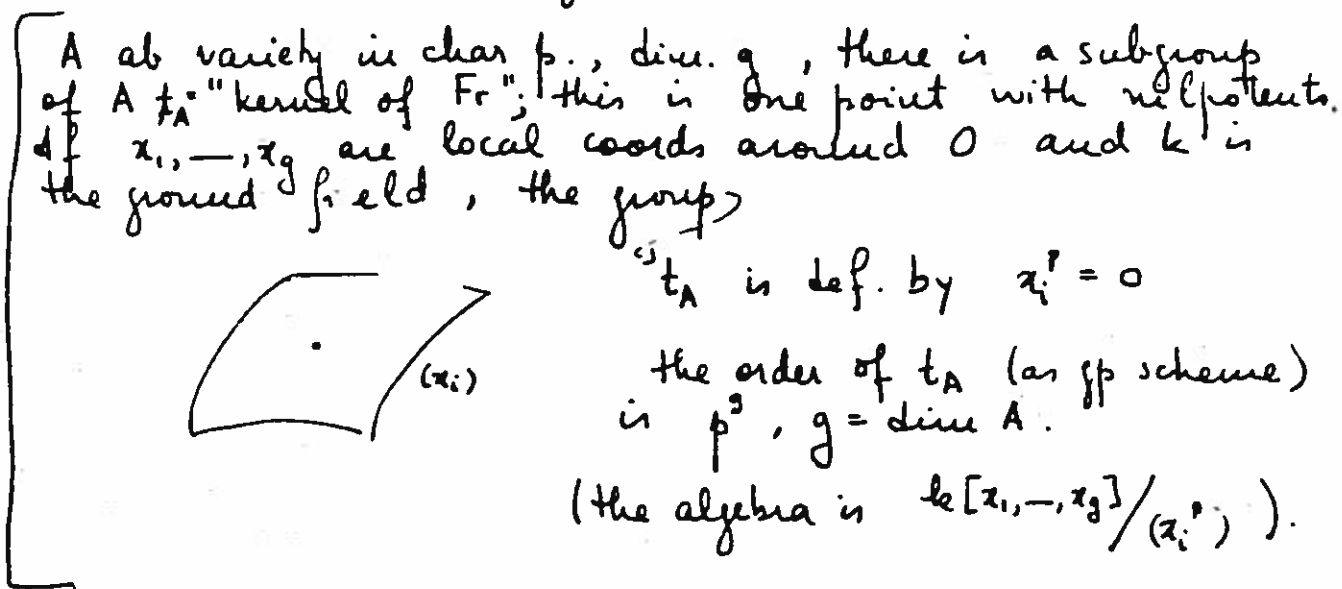 A ab variety in char p., dim. g, there is a subgroup
of A t_A: "kernel of Fr"; this is one point with nilpotents.
If x_1, —, x_g are local coords around 0 and k is
the ground field, the group
t_A is def. by x_i^p = 0
(x_i)
the order of t_A (as gp scheme)
is p^g, g = dim A.
(the algebra is k[x_1, —, x_g]/(x_i^p)).